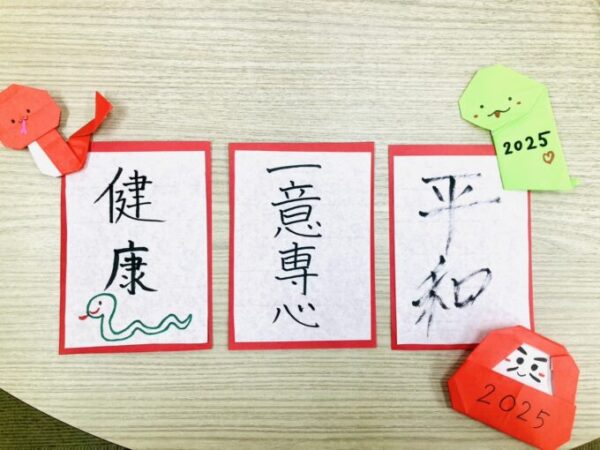 健康
一意専心
平和
2025
2025